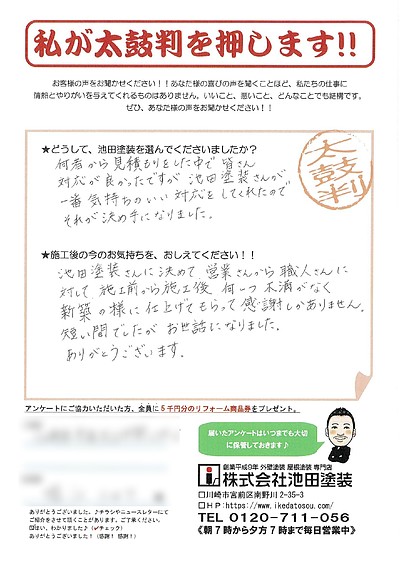 私が太鼓判を押します!!
お客様の声をお聞かせください!!あなた様の喜びの声を聞くことほど、私たちの仕事に
情熱とやりがいを与えてくれるものはありません。いいこと、悪いこと、どんなことでも結構です。
ぜひ、あなた様の声をお聞かせください!!
★どうして、池田塗装を選んでくださいましたか?
太鼓判
何者から見積もりをした中で皆さん
対応が良かったですが池田塗装さんが
一番気持ちのいい対応をしてくれたので
それが決め手になりました。
★施工後の今のお気持ちを、おしえてください!!
池田塗装さんに決めて営業さんから職人さんに
対して施工前から施工後何一つ不満がなく
新築の様に仕上げてもらって感謝しかありません。
短い間でしたがお世話になりました。
ありがとうございます。
アンケートにご協力いただいた方、全員に5千円分のリフォーム商品券をプレゼント。
届いたアンケートはいつまでも大切
に保管しておきます♪
創業平成9年 外壁塗装 屋根塗装 専門店
株式会社池田塗装
□川崎市宮前区南野川2-35-3
□HP:https://www.ikedatosou.com/
TEL 0120-711-056
《朝7時から夕方7時まで毎日営業中》
ありがとうございました。♪チラシやニュースレターにて
ご紹介をさせて頂くことがあります。ご了承ください。
☑はい、わかりました♪(✔チェック)
ありがとうございました!(感謝!感謝!)